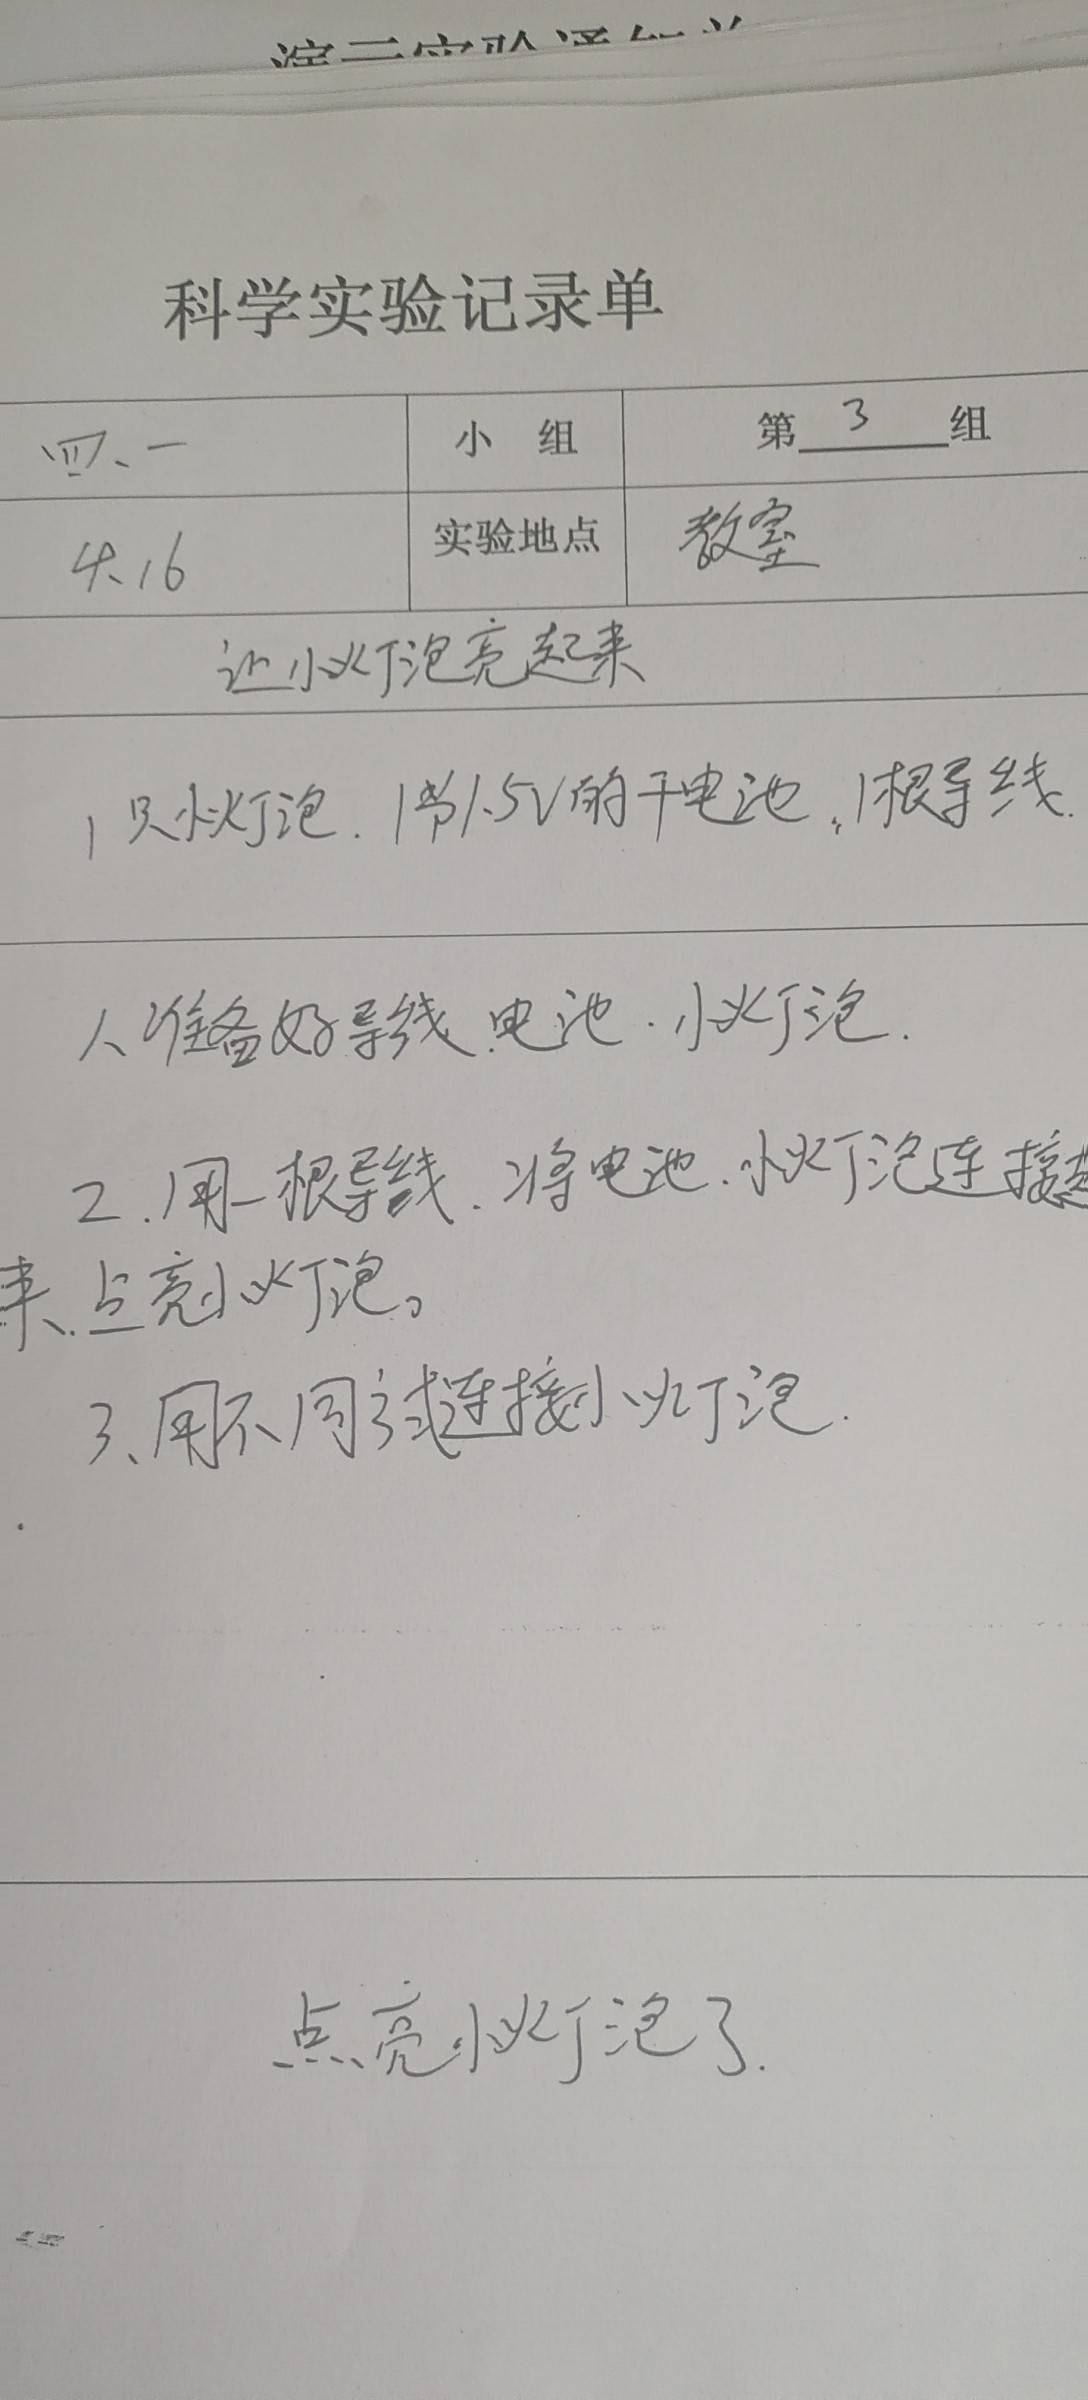 演示实验通知单
科学实验记录单
四、一 小 组 第 3 组
4、16 实验地点 教室
让小灯泡亮起来
1只小灯泡.1节1.5V的干电池,1根导线.
1、准备好导线、电池.小灯泡.
2.用一根导线.将电池.小灯泡连接起
来.点亮小灯泡。
3、用不同方式连接小灯泡.
点亮小灯泡了.